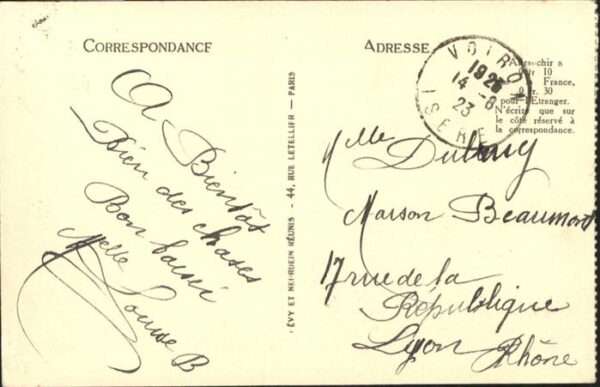 CORRESPONDANCE
ADRESSE
VOIRON
1925
14-8
23
ISÈRE
Affranchir à
0 fr 10
France,
0 fr. 30
pour l'Étranger.
N'écrire que sur
le côté réservé à
la correspondance.
A Bientôt
Bien des choses
Bon baisé
Melle
Louise B
LÉVY ET NEURDEIN RÉUNIS - 44, RUE LETELLIER - PARIS
Mlle
Maison Beaumont
17 rue de la
République
Lyon
Rhône